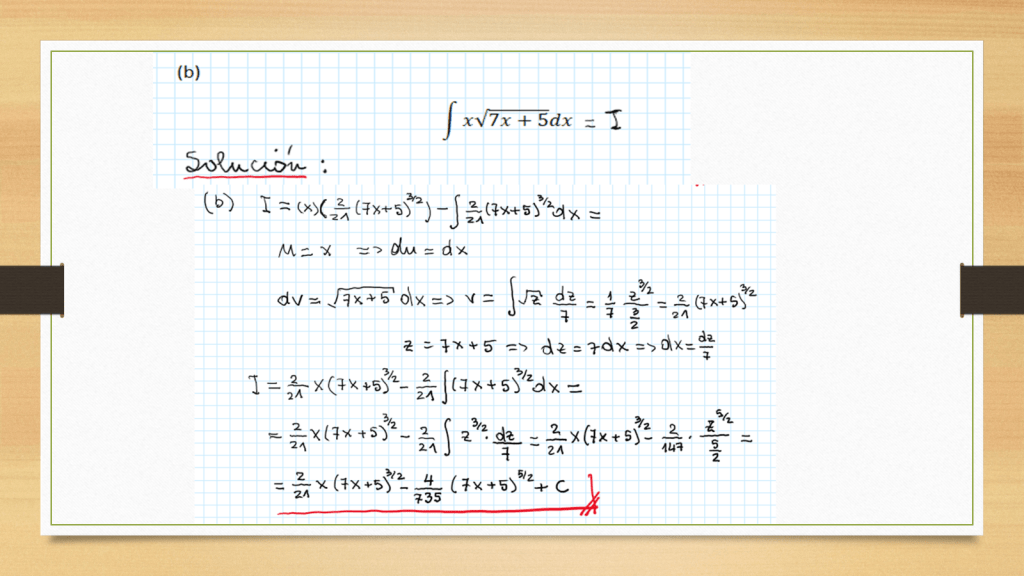 (b)
∫ x√(7x + 5)dx = I
Solución :
(b) I = (x)(2/21 (7x+5)^3/2) - ∫ 2/21 (7x+5)^3/2 dx =
u = x => du = dx
dv = √(7x+5) dx => v = ∫√z dz/7 = 1/7 z^3/2 / 3/2 = 2/21 (7x+5)^3/2
z = 7x+5 => dz = 7dx => dx = dz/7
I = 2/21 x (7x+5)^3/2 - 2/21 ∫(7x+5)^3/2 dx =
= 2/21 x (7x+5)^3/2 - 2/21 ∫ z^3/2 · dz/7 = 2/21 x (7x+5)^3/2 - 2/147 · z^5/2 / 5/2 =
= 2/21 x (7x+5)^3/2 - 4/735 (7x+5)^5/2 + C